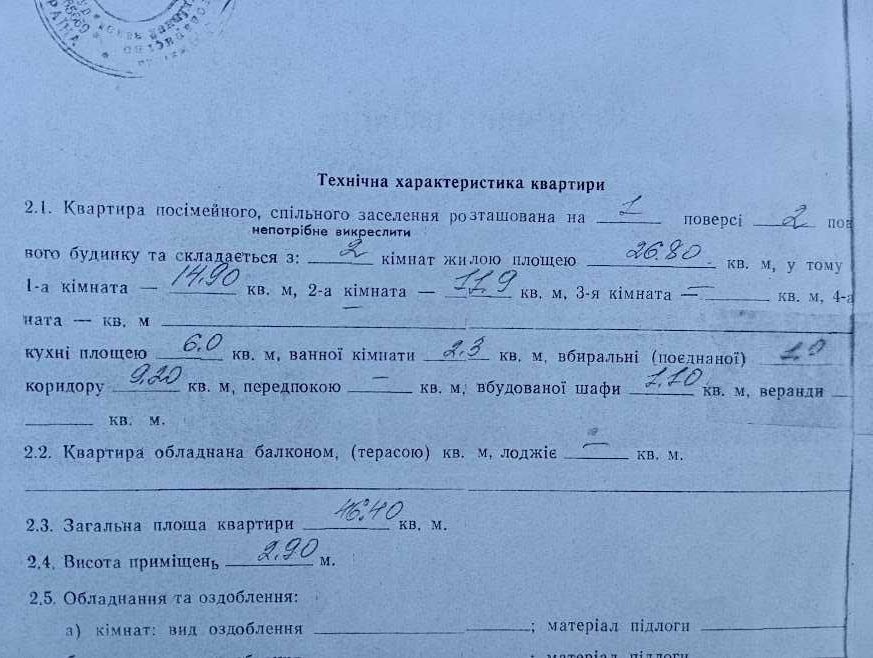 УКРАЇНА
Технічна характеристика квартири
2.1. Квартира посімейного, спільного заселення розташована на 1 поверсі 2 пов
непотрібне викреслити
вого будинку та складається з: 2 кімнат жилою площею 26.80 кв. м, у тому
1-а кімната — 14.90 кв. м, 2-а кімната — 11.9 кв. м, 3-я кімната — – кв. м, 4-а
ната — кв. м –
кухні площею 6.0 кв. м, ванної кімнати 2.3 кв. м, вбиральні (поєднаної) 1.0
коридору 9.20 кв. м, передпокою – кв. м, вбудованої шафи 1.10 кв. м, веранди
кв. м.
2.2. Квартира обладнана балконом, (терасою) кв. м, лоджіє – кв. м.
2.3. Загальна площа квартири 46.40 кв. м.
2.4. Висота приміщень 2.90 м.
2.5. Обладнання та оздоблення:
а) кімнат: вид оздоблення ; матеріал підлоги
; матеріал підлоги